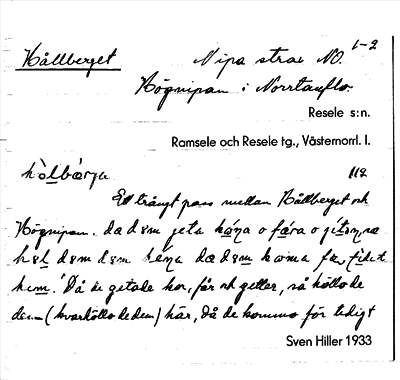 Hållberget Nipa strax NO. 1-2
Högnipan i Norrtanflo.
Resele s:n.
Ramsele och Resele tg., Västernorrl. l.
hòlbærja 112
Ett trångt pass mellan Hållberget och
Högnipan. da dom jeta kóna o fåra o
hol dom dom da dom koma
hem. Då de getade kor, får och getter, så höllo de
dem (kvarhöllo de dem) här, då de kommo för tidigt
Sven Hiller 1933